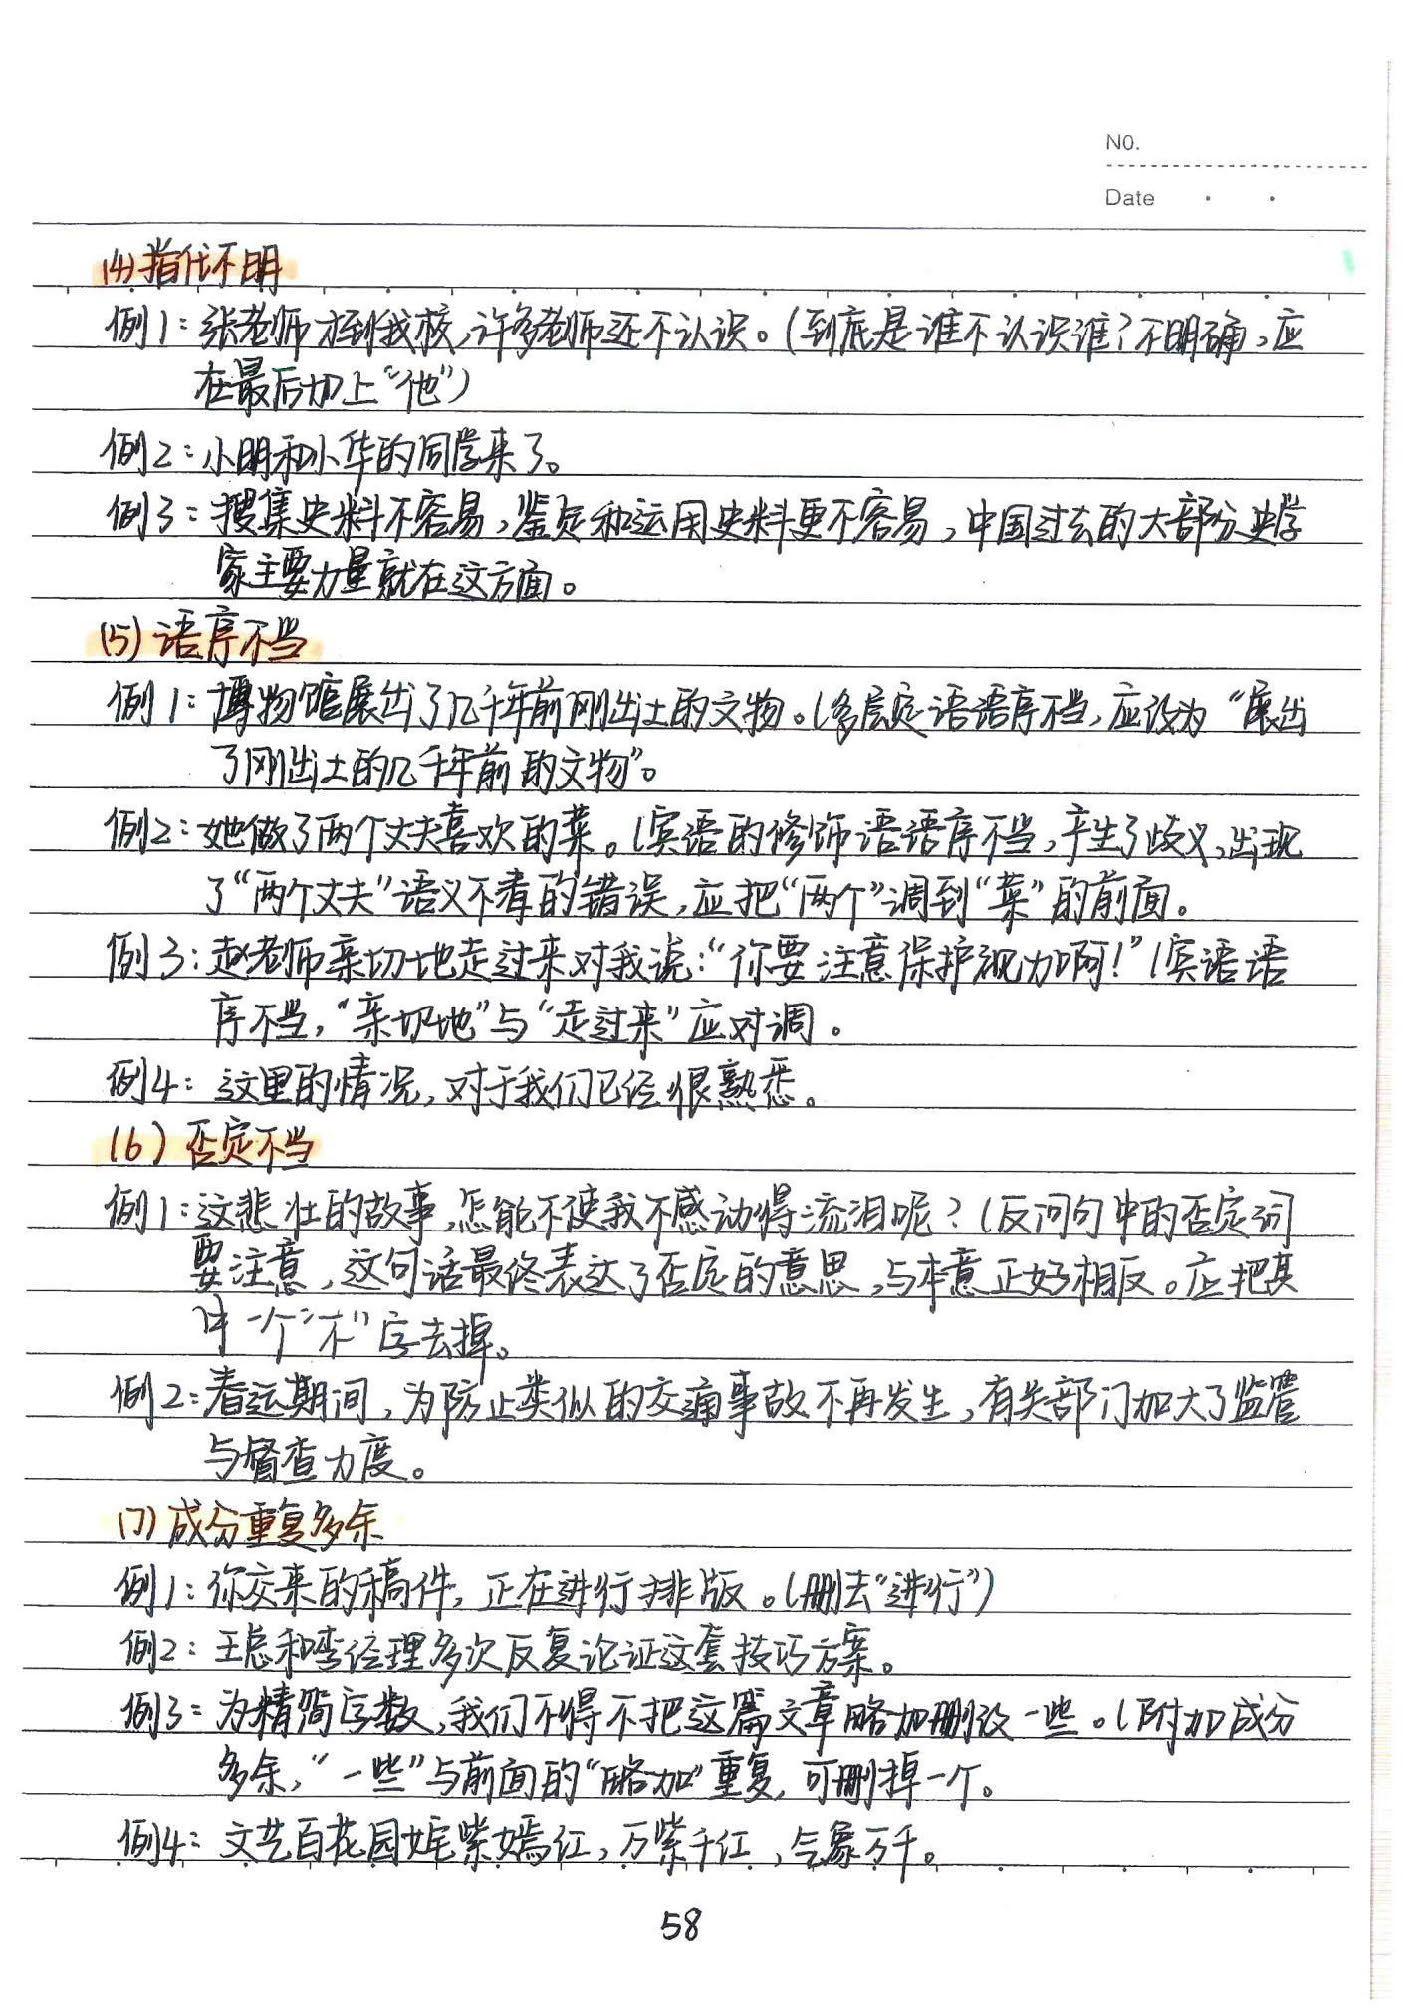 NO.
Date
(4)指代不明
例1：张老师才到我校，许多老师还不认识。（到底是谁不认识谁？不明确，应
在最后加上“他”）
例2：小明和小华的同学来了。
例3：搜集史料不容易，鉴定和运用史料更不容易，中国过去的大部分史学
家主要力量就在这方面。
(5)语序不当
例1：博物馆展出了几千年前刚出土的文物。（多层定语语序不当，应改为“展出
了刚出土的几千年前的文物”。
例2：她做了两个丈夫喜欢的菜。（宾语的修饰语语序不当，产生了歧义，出现
了“两个丈夫”语义不清的错误，应把“两个”调到“菜”的前面。
例3：赵老师亲切地走过来对我说：“你要注意保护视力啊！”（宾语语
序不当，“亲切地”与“走过来”应对调。
例4：这里的情况，对于我们已经很熟悉。
(6)否定不当
例1：这悲壮的故事，怎能不使我不感动得流泪呢？（反问句中的否定词
要注意，这句话最终表达了否定的意思，与本意正好相反。应把其
中一个“不”字去掉。
例2：春运期间，为防止类似的交通事故不再发生，有关部门加大了监管
与督查力度。
(7)成分重复多余
例1：你交来的稿件，正在进行排版。（删去“进行”）
例2：王总和李经理多次反复论证这套技巧方案。
例3：为精简字数，我们不得不把这篇文章略加删改一些。（附加成分
多余，“一些”与前面的“略加”重复，可删掉一个。
例4：文艺百花园姹紫嫣红，万紫千红，气象万千。
58